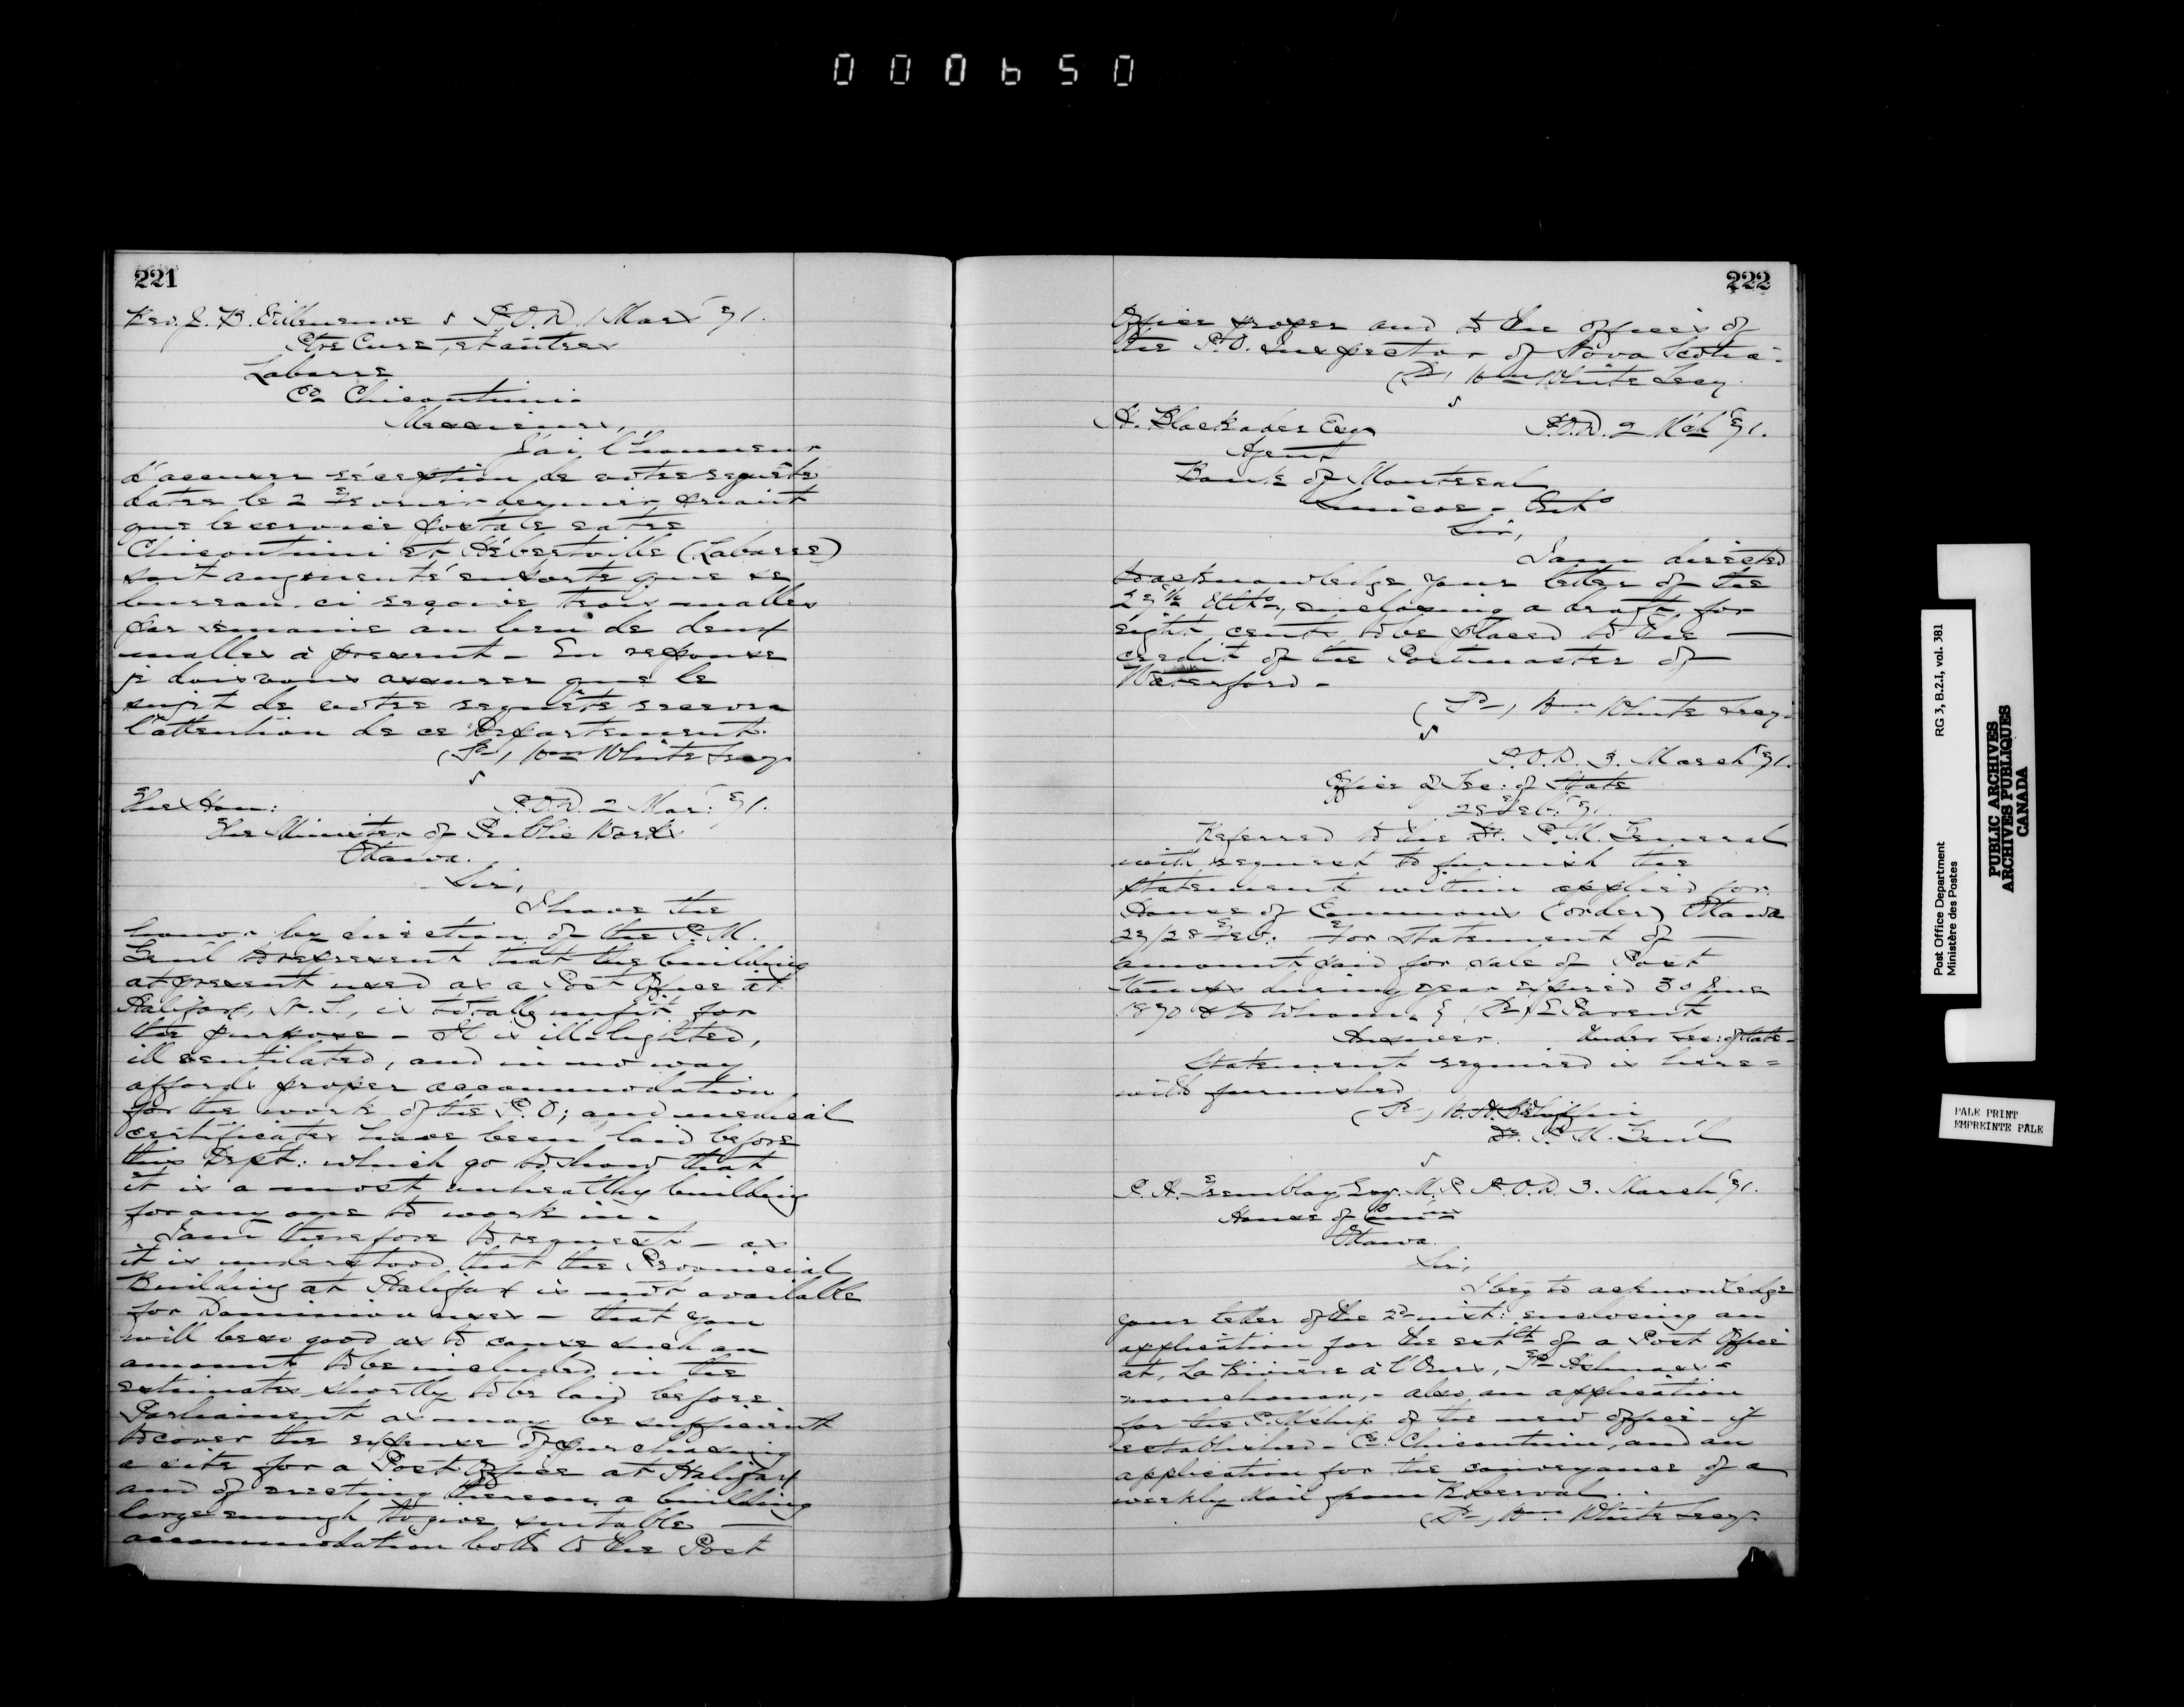 000650
221
Rev. J. B. Villeneuve & P.O.D. 1 Mar '71.
Ptre Cure, et autres
Labarre
Co Chicoutimi
Messieurs,
J'ai l'honneur
d'accuser réception de votre requête
datee le 2 Fevrier dernier priant
que le service postale entre
Chicoutimi et Hébertville (Labarre)
soit augmenté ensorte que ce
bureau ci reçoive trois malles
par semaine au lieu de deux
malles à present - En reponse
je dois vous assurer que le
sujet de votre requête recevra
l'attention de ce Département.
(Sd) Wm White Secy
The Hon: P.O.D. 2 Mar: '71.
The Minister of Public Works
Ottawa.
Sir,
I have the
honor by direction of the P.M.
Genl to represent that the building
at present used as a Post Office at
Halifax, N.S., is totally unfit for
the purpose - It is ill-lighted,
ill ventilated, and in no way
affords proper accommodation
for the work of the P.O; and medical
certificates have been laid before
this Dept: which go to show that
it is a most unhealthy building
for any one to work in.
I am therefore to request - as
it is understood that the Provincial
Building at Halifax is not available
for Dominion uses - that you
will be so good as to cause such an
amount to be included in the
estimates shortly to be laid before
Parliament as may be sufficient
to cover the expense of purchasing
a site for a Post Office at Halifax
and of erecting thereon a building
large enough to give suitable
accommodation both to the Post
222
Office proper and to the offices of
the P.O. Inspector of Nova Scotia.
(Sd) Wm White Secy.
H. Blackader Esq P.O.D. 2 Mch '71.
Agent
Bank of Montreal
Simcoe - Ont
Sir,
I am directed
to acknowledge your letter of the
27th Ulto, enclosing a draft for
eight cents to be placed to the
credit of the Postmaster of
Waterford -
(Sd) Wm White Secy.
P.O.D. 3. March '71.
Office of Sec: of State
28 Feb: '71.
Referred to the Dy. P.M. General
with request to furnish the
statement within applied for.
House of Commons (order) Ottawa
27/28 Feb: For statement of
amount paid for sale of Post
Stamps during year expired 30 June
1870 & to whom. (Sd) E Parent
Answer. Under Sec: of State -
Statement required is here=
with furnished
(Sd) W. H. Griffin
Dy. P. M. Genl
P. A. Tremblay Esq. M.P. P.O.D. 3. March '71.
House of Comms
Ottawa.
Sir,
I beg to acknowledge
your letter of the 2d inst: enclosing an
application for the estt of a Post Office
at, La Rivière à l'Ours,
also an application
for the P.M'ship of the new office - if
established - Co. Chicoutimi, and an
application for the conveyance of a
weekly Mail from Roberval.
(Sd) Wm. White Secy.
Post Office Department RG 3, B.2.I, vol. 381
Ministère des Postes
PUBLIC ARCHIVES
ARCHIVES PUBLIQUES
CANADA
PALE PRINT
EMPREINTE PÂLE